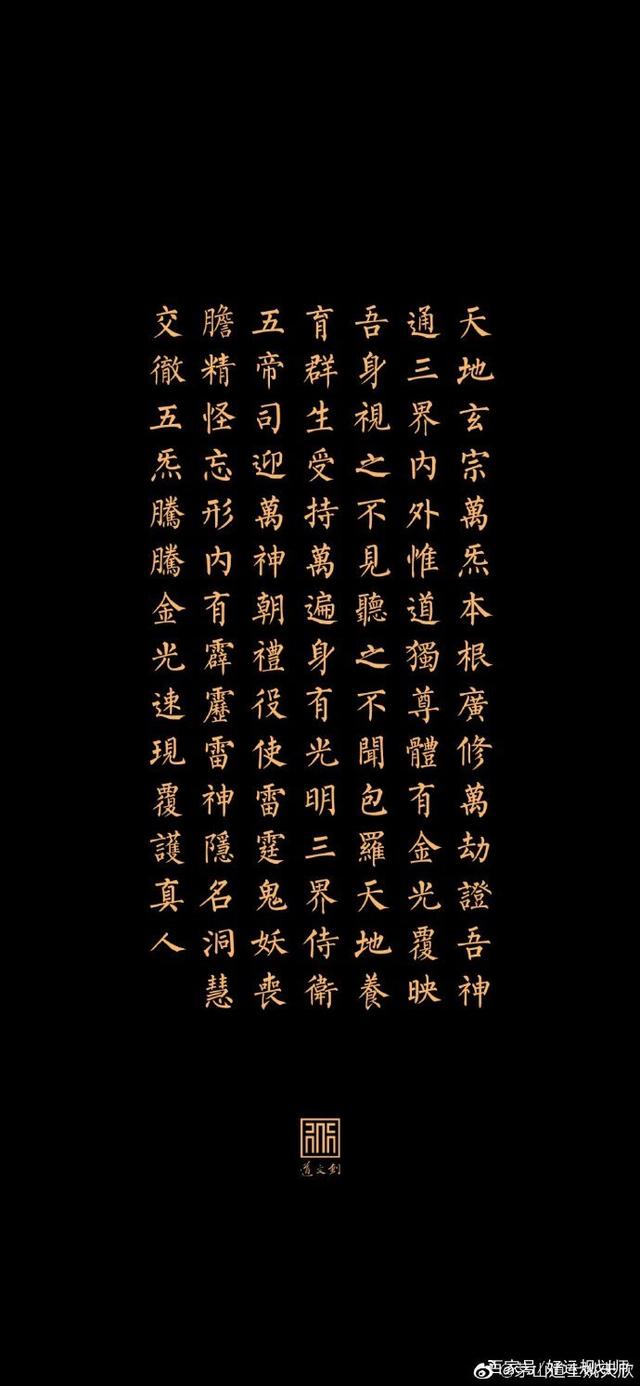 天地玄宗萬炁本根廣修萬劫證吾神
通三界內外惟道獨尊體有金光覆映
吾身視之不見聽之不聞包羅天地養
育群生受持萬遍身有光明三界侍衛
五帝司迎萬神朝禮役使雷霆鬼妖喪
膽精怪忘形內有霹靂雷神隱名洞慧
交徹五炁騰騰金光速現覆護真人
道文創
百家号/好运规划师